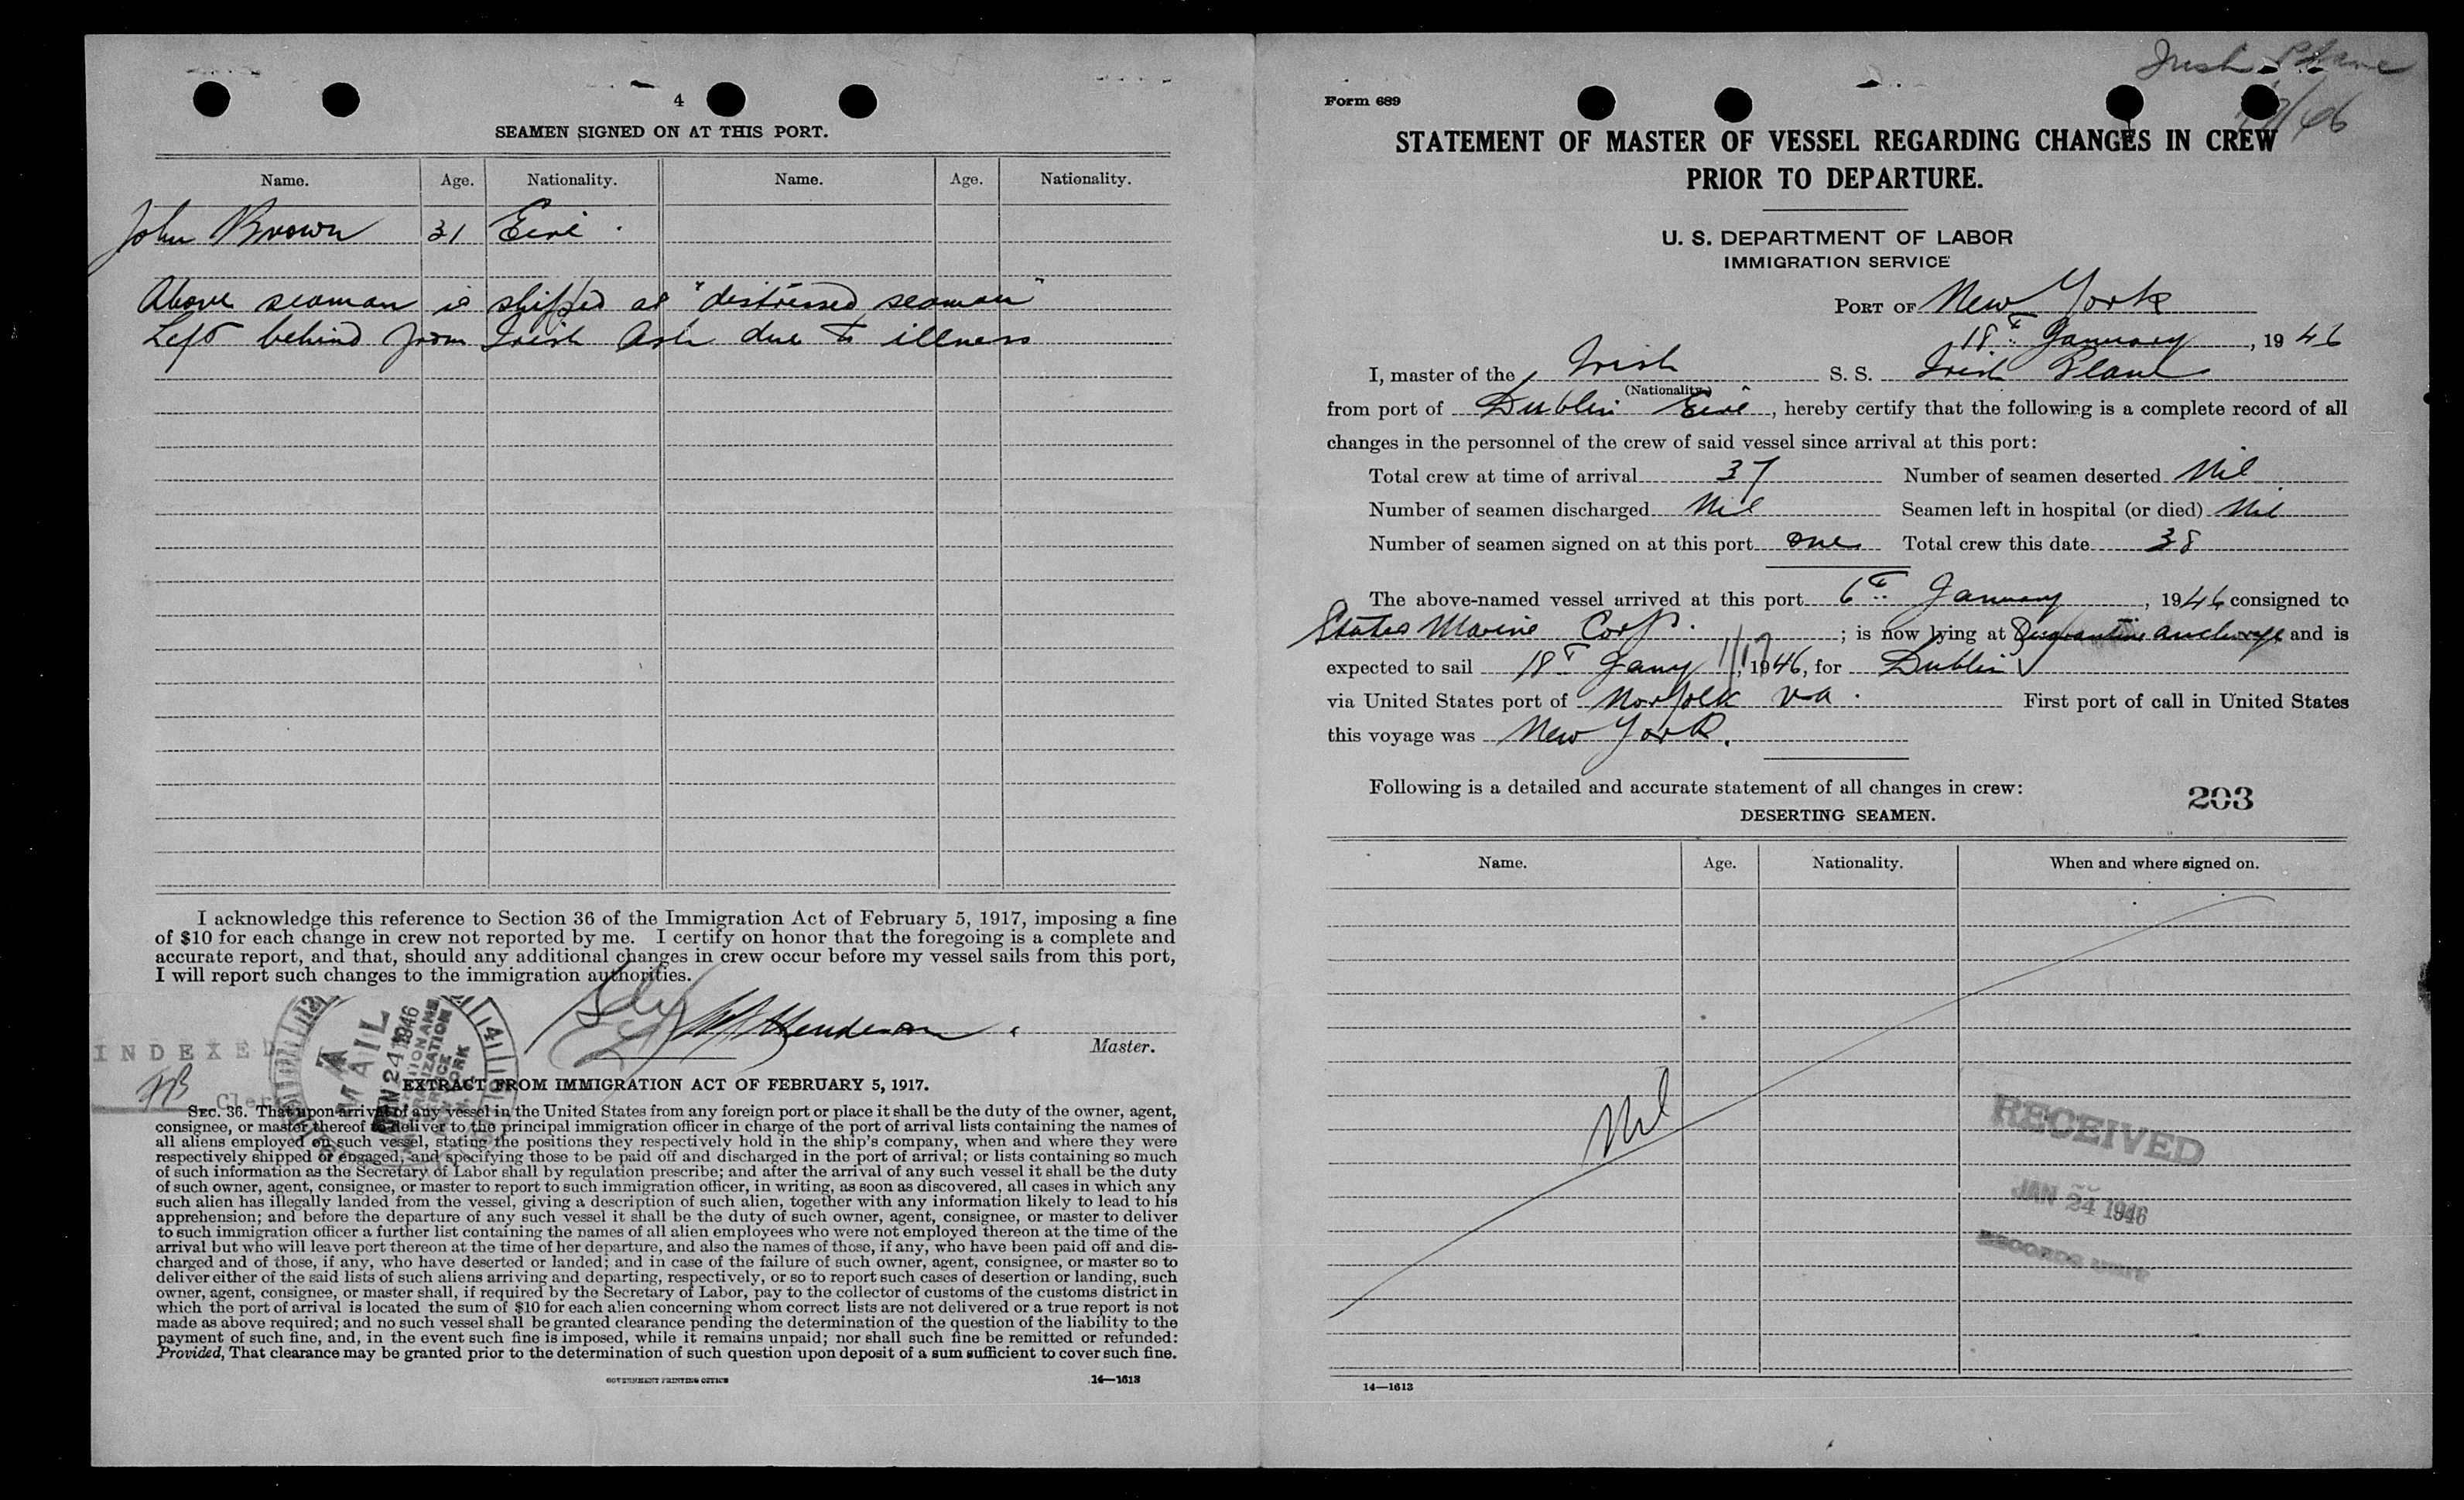 4
SEAMEN SIGNED ON AT THIS PORT.
Name. Age. Nationality. Name. Age. Nationality.
John Brown 31 Eire.
Above seaman is shipped as "distressed seaman"
Left behind from Irish Ash due to illness
I acknowledge this reference to Section 36 of the Immigration Act of February 5, 1917, imposing a fine
of $10 for each change in crew not reported by me. I certify on honor that the foregoing is a complete and
accurate report, and that, should any additional changes in crew occur before my vessel sails from this port,
I will report such changes to the immigration authorities.
Henderson
Master.
INDEXED
Clerk
MAIL
JAN 24 1946
EXTRACT FROM IMMIGRATION ACT OF FEBRUARY 5, 1917.
SEC. 36. That upon arrival of any vessel in the United States from any foreign port or place it shall be the duty of the owner, agent,
consignee, or master thereof to deliver to the principal immigration officer in charge of the port of arrival lists containing the names of
all aliens employed on such vessel, stating the positions they respectively hold in the ship's company, when and where they were
respectively shipped or engaged, and specifying those to be paid off and discharged in the port of arrival; or lists containing so much
of such information as the Secretary of Labor shall by regulation prescribe; and after the arrival of any such vessel it shall be the duty
of such owner, agent, consignee, or master to report to such immigration officer, in writing, as soon as discovered, all cases in which any
such alien has illegally landed from the vessel, giving a description of such alien, together with any information likely to lead to his
apprehension; and before the departure of any such vessel it shall be the duty of such owner, agent, consignee, or master to deliver
to such immigration officer a further list containing the names of all alien employees who were not employed thereon at the time of the
arrival but who will leave port thereon at the time of her departure, and also the names of those, if any, who have been paid off and dis-
charged and of those, if any, who have deserted or landed; and in case of the failure of such owner, agent, consignee, or master so to
deliver either of the said lists of such aliens arriving and departing, respectively, or so to report such cases of desertion or landing, such
owner, agent, consignee, or master shall, if required by the Secretary of Labor, pay to the collector of customs of the customs district in
which the port of arrival is located the sum of $10 for each alien concerning whom correct lists are not delivered or a true report is not
made as above required; and no such vessel shall be granted clearance pending the determination of the question of the liability to the
payment of such fine, and, in the event such fine is imposed, while it remains unpaid; nor shall such fine be remitted or refunded:
Provided, That clearance may be granted prior to the determination of such question upon deposit of a sum sufficient to cover such fine.
GOVERNMENT PRINTING OFFICE 14—1613
Irish Plane
Form 689
STATEMENT OF MASTER OF VESSEL REGARDING CHANGES IN CREW
PRIOR TO DEPARTURE.
U. S. DEPARTMENT OF LABOR
IMMIGRATION SERVICE
PORT OF New York
18th January, 1946
I, master of the Irish S. S. Irish Plane
(Nationality)
from port of Dublin Eire, hereby certify that the following is a complete record of all
changes in the personnel of the crew of said vessel since arrival at this port:
Total crew at time of arrival 37 Number of seamen deserted Nil
Number of seamen discharged Nil Seamen left in hospital (or died) Nil
Number of seamen signed on at this port one Total crew this date 38
The above-named vessel arrived at this port 6th January, 1946 consigned to
States Marine Corp. ; is now lying at Quarantine anchorage and is
expected to sail 18th Jany 1/17, 1946, for Dublin
via United States port of Norfolk Va. First port of call in United States
this voyage was New York.
Following is a detailed and accurate statement of all changes in crew:
203
DESERTING SEAMEN.
Name. Age. Nationality. When and where signed on.
Nil
RECEIVED
JAN 24 1946
RECORDS UNIT
14—1613